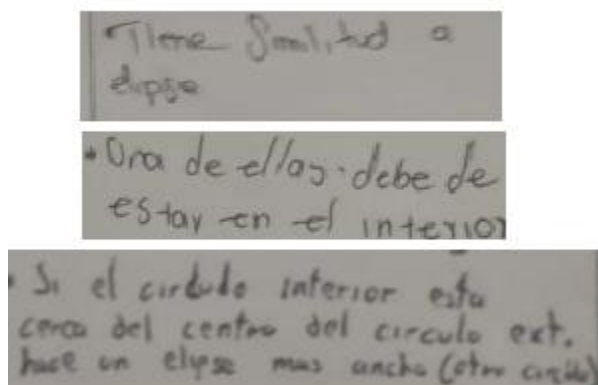 Tiene Similitud a
elipse
• Una de ellas debe de
estar en el interior
• Si el circulo interior esta
cerca del centro del circulo ext.
hace un elipse mas ancho (otro circulo)